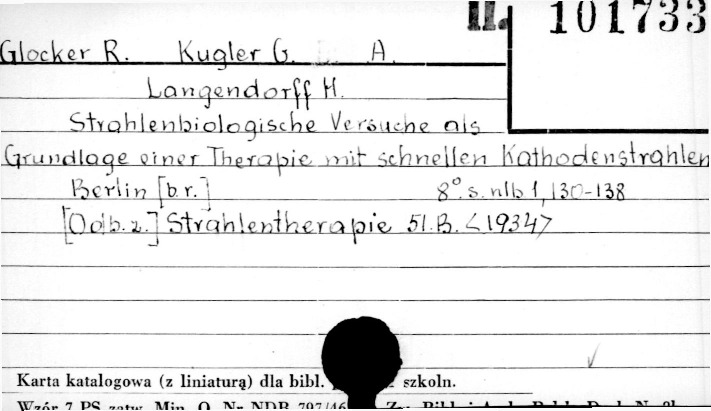 II. 101733
Glocker R. Kugler G. A.
Langendorff H.
Strahlenbiologische Versuche als
Grundlage einer Therapie mit schnellen Kathodenstrahlen
Berlin [b.r.] 8°. s. nlb 1, 130-138
[Odb. z.] Strahlentherapie 51.B. <1934>
Karta katalogowa (z liniaturą) dla bibl. szkoln.
Wzór 7 PS zatw. Min. O. Nr NDB 797/46